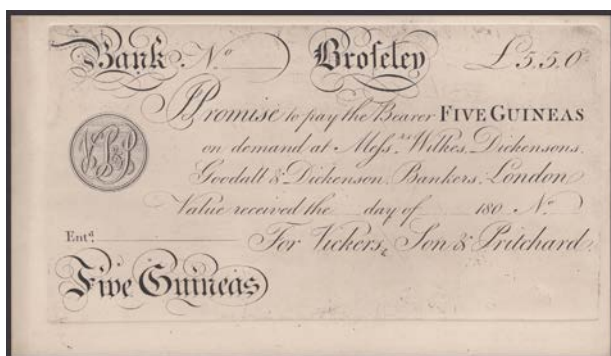 Bank. No Broseley £5.5.0
Promise to pay the Bearer FIVE GUINEAS
on demand at Messrs. Wilkes, Dickensons,
Goodall & Dickenson, Bankers, London
Value received the day of 180 No
VS&P
Entd.
For Vickers, Son & Pritchard.
Five Guineas